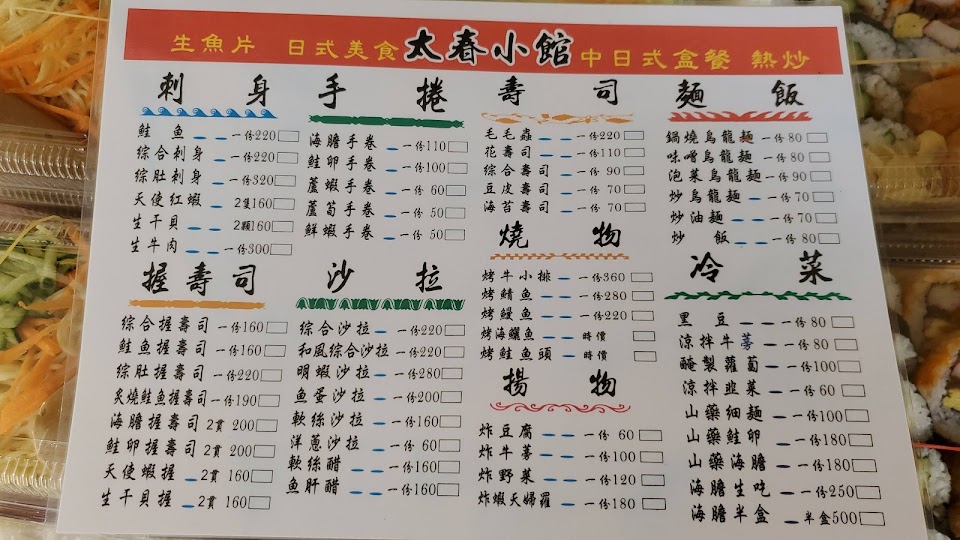 生魚片 日式美食 太春小館 中日式盒餐 熱炒
刺身
鮭魚 一份220
綜合刺身 一份220
綜肚刺身 一份320
天使紅蝦 2隻160
生干貝 2顆160
生牛肉 一份300
握壽司
綜合握壽司 一份160
鮭魚握壽司 一份160
綜肚握壽司 一份220
炙燒鮭魚握壽司 一份190
海膽握壽司 2貫 200
鮭卵握壽司 2貫 200
天使蝦握 2貫 160
生干貝握 2貫 160
手捲
海膽手卷 一份110
鮭卵手卷 一份100
蘆蝦手卷 一份 60
蘆筍手卷 一份 50
鮮蝦手卷 一份 50
沙拉
綜合沙拉 一份220
和風綜合沙拉 一份220
明蝦沙拉 一份280
魚蛋沙拉 一份200
軟絲沙拉 一份160
洋蔥沙拉 一份 60
軟絲醋 一份160
魚肝醋 一份160
壽司
毛毛蟲 一份220
花壽司 一份110
綜合壽司 一份 90
豆皮壽司 一份 70
海苔壽司 一份 70
燒物
烤牛小排 一份360
烤鯖魚 一份280
烤鰻魚 一份220
烤海鱺魚 時價
烤鮭魚頭 時價
揚物
炸豆腐 一份 60
炸牛蒡 一份100
炸野菜 一份120
炸蝦天婦羅 一份180
麵飯
鍋燒烏龍麵 一份 80
味噌烏龍麵 一份 80
泡菜烏龍麵 一份 90
炒烏龍麵 一份 70
炒油麵 一份 70
炒飯 一份 80
冷菜
黑豆 一份 80
涼拌牛蒡 一份 80
醃製蘿蔔 一份100
涼拌韭菜 一份 60
山藥細麵 一份100
山藥鮭卵 一份180
山藥海膽 一份180
海膽生吃 一份250
海膽半盒 半盒500